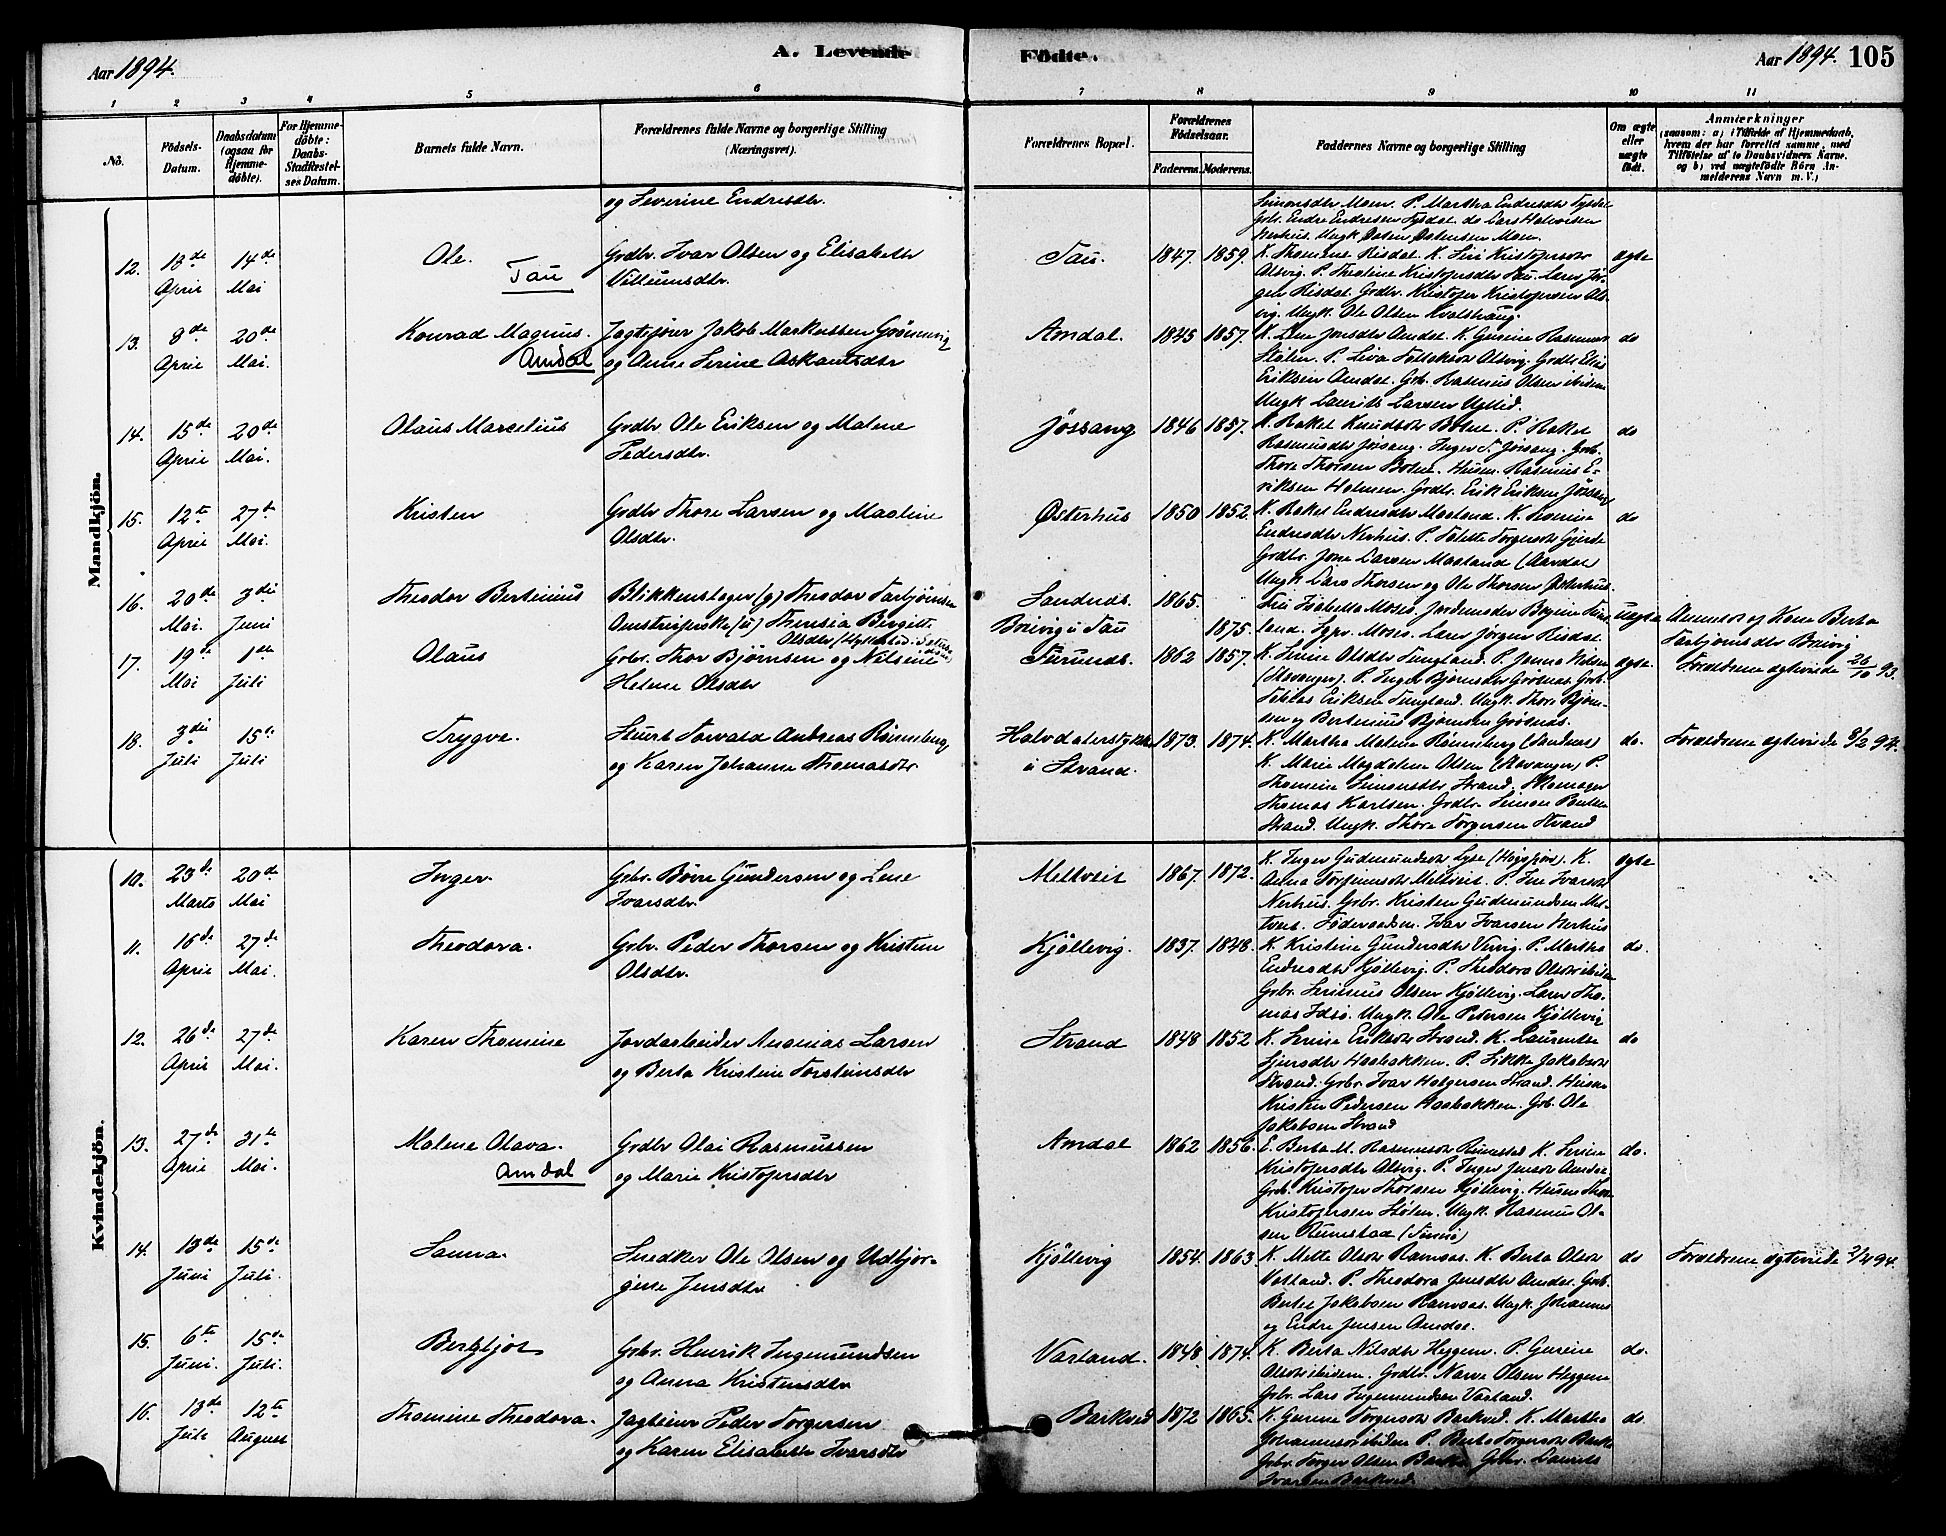 Aar 1894.
A. Levende
Födte.
Aar 1894.
105
1 2 3 4 5 6 7 8 9 10 11
No.
Födsels-Datum.
Daabsdatum (ogsaa for Hjemme-döbte).
For Hjemme-döbte: Daabs-Stadfæstelses Datum.
Barnets fulde Navn.
Forældrenes fulde Navne og borgerlige Stilling (Næringsvei).
Forældrenes Bopæl.
Forældrenes Födselsaar.
Faderens. Moderens.
Faddernes Navne og borgerlige Stilling
Om ægte eller uægte födt.
Anmærkninger
(saasom: a) i Tilfælde af Hjemmedaab, hvem der har forrettet samme, med Tilföielse af to Daabsvidners Navne, og b) ved uægtefödte Börn Anmelderens Navn m. V.)
Mandkjön.
og Severine Endresdtr.
Simonsdtr Moen. P. Martha Endresdtr Tysdal
Grb. Endre Endresen Tysdal. do Lars Halvorsen
Nerhus. Ungk. Osten Ostensen Moen.
12. 13de April 14de Mai
Ole.
Tau
Grdbr Ivar Olsen og Elisabeth
Villumsdtr.
Tau. 1847. 1859.
K. Thomine Risdal. K. Siri Kristofersdtr
Alsvig. P. Thealine Kristofersdtr Tau. Lærer Jør-
gen Risdal. Grdbr. Kristofer Kristofersen Als-
vig. Ungk. Ole Olsen Kvalshaug.
ægte
13. 8de April 20de Mai.
Konrad Magnus.
Amdal
Jagtskjører Jakob Markussen Grønnevig
og Anne Serine Askautsdtr
Amdal. 1845 1857.
K. Lene Jonsdtr Amdal. K. Gurine Rasmusdtr
Stølen. P. Siva Tollaksdtr Alsvig. Grdbr Elias
Eriksen Amdal. Grb. Rasmus Olsen ibidem
Ungk Laurits Larsen
do
14. 15de April 20de Mai.
Olaus Marcelius
Grdbr Ole Eriksen og Malene
Pedersdtr.
Jøssang 1846 1857.
K. Rakel Knudsdtr Botne. P. Rakel
Rasmusdtr Jøssang. Inger T. Jøssang. Grb.
Thore Thorsen Botne. Husm. Rasmus E-
riksen Holmen. Grdbr. Erik Eriksen Jøssang
do
15. 12te April 27de Mai.
Kristen
Grdbr Thore Larsen og Malene
Olsdtr.
Østerhus 1850 1852.
K. Rakel Endresdtr Mastand. K. Karine
Endresdtr Nerhus. P. Talette Torgersdtr Gjerde
Grdbr. Jone Larsen Mastand (Aardal)
Ungk Lars Thorsen og Ole Thorsen Østerhus.
do
16. 20de Mai. 3die Juni
Theodor Bertinius
Blikkenslager (g) Theodor Tarbjørnsen
Omstreiferske (u) Theresia Birgitte
Olsdtr
Sandnæs. 1865.
Breivig i Tau 1875.
Siri Isabella Moses. Jordemoder Bogine Tung-
land. Sgpr. Moses. Lærer Jørgen Risdal.
uægte
Anmeldt af Kone Berta
Tarbjørnsdtr Breivig
17. 19de Mai 1ste Juli
Olaus
Grbr. Thor Bjørnsen og Nilsine
Helene Olsdtr
Furunæs. 1862 1857.
K. Serine Olsdtr Tungland. P. Janna Nilsen
(Stavanger). P. Inger Bjørnsdtr Grosnæs. Grb.
Tobias Eriksen Tungland. Ungk. Thore Bjørn-
sen og Bertinius Bjørnsen Grøsnæs.
ægte.
Forældrene ægteviede 26/10 93.
18. 3die Juli 15de Juli
Trygve.
Stuert Torvald Andreas Rønneberg
og Karen Johanne Thomasdtr
Halvdalerstykke
i Strand. 1873. 1874.
K. Martha Malene Rønneberg (Sandnæs)
K. Marie Magdalene Olsen (Stavanger) P.
Thomine Simonsdtr Strand. Skomager
Thomas Karlsen. Grdbr. Simon Bertsen
Strand. Ungk. Thore Torgersen Strand
do.
Forældrene ægteviede 8/2 94.
Kvindekjön.
10. 23de Marts 20de Mai
Inger
Grbr. Børre Gundersen og Lene
Ivarsdtr.
Meltveit 1867. 1872.
K. Inger Gudmundsdtr Lyse (Høgsfjord). K.
Anna Torjeimsdtr Meltveit. P. Ine Ivarsdtr
Nerhus. Grbr. Kristen Gudmundsen Mel-
tveit. Føderaadsm. Ivar Ivarsen Nerhus
ægte
11. 16de April 27de Mai.
Theodora.
Grbr. Peder Thorsen og Kristine
Olsdtr.
Kjøllevig. 1837. 1848.
K. Kristine Gundersdtr Vervig. P. Martha
Endresdtr Kjøllevig. P. Theodora Olsdtr ibidem
Grbr. Serinius Olsen Kjøllevig. Lærer Tho-
mas Idsø. Ungk. Ole Pedersen Kjøllevig
do.
12. 26de April 27de Mai.
Karen Thomine
Jordarbeider Ananias Larsen
og Berta Kristine Torsteinsdtr
Strand 1848 1852
K. Serine Eriksdtr Strand. K. Laurentse
Sjursdtr Haabakken. P. Sikke Jakobsdtr
Strand. Grbr. Ivar Holgersen Strand. Husm.
Kristen Pedersen Haabakken. Grb. Ole
Jakobsen Strand
do
13. 27de April 31te Mai.
Malene Olava.
Amdal
Grdbr Olai Rasmussen
og Marie Kristofersdtr
Amdal 1862 1856.
E. Berta M. Rasmusdtr Runestad K. Serine
Kristofersdtr Alsvig. P. Inger Jensdtr Amdal
Grb. Kristofer Thorsen Kjøllevig. Husm. Thore
Kristofersen Stølen. Ungk. Rasmus Ol-
sen Runestad
do.
14. 13de Juni 15de Juli.
Sanna.
Snedker Ole Olsen og Udbjør-
gine Jensdtr
Kjøllevig 1854. 1863.
K. Mette Olsdtr Ramsaas. K. Berta Olsdtr
Vatland. P. Theodora Jensdtr Amdal. Grb.
Bertel Jakobsen Ramsaas. Ungk. Johannes
og Endre Jensen Amdal.
do
Forældrene ægteviede 2/2 94.
15. 6te Juni. 15de Juli.
Bergljot
Grbr. Henrik Ingemundsen
og Anna Kristensdtr
Vatland. 1848. 1874.
K. Berta Nilsdtr Heggem. P. Gurine
Olsdtr ibidem. Grdbr. Narve Olsen Heggem
Grbr. Lars Ingemundsen Vatland.
do.
16. 13de Juli 12te August
Thomine Theodora.
Jagteier Peder Torgersen
og Karen Elisabeth Ivarsdtr
Barkved 1872 1865.
K. Gurine Torgersdtr Barkved. K. Martha
Johannesdtr ibidem P. Berta Torgersdtr Barkv.
Grbr. Torger Olsen Barkv. Grbr. Daniel
Ivarsen Barkved
do.